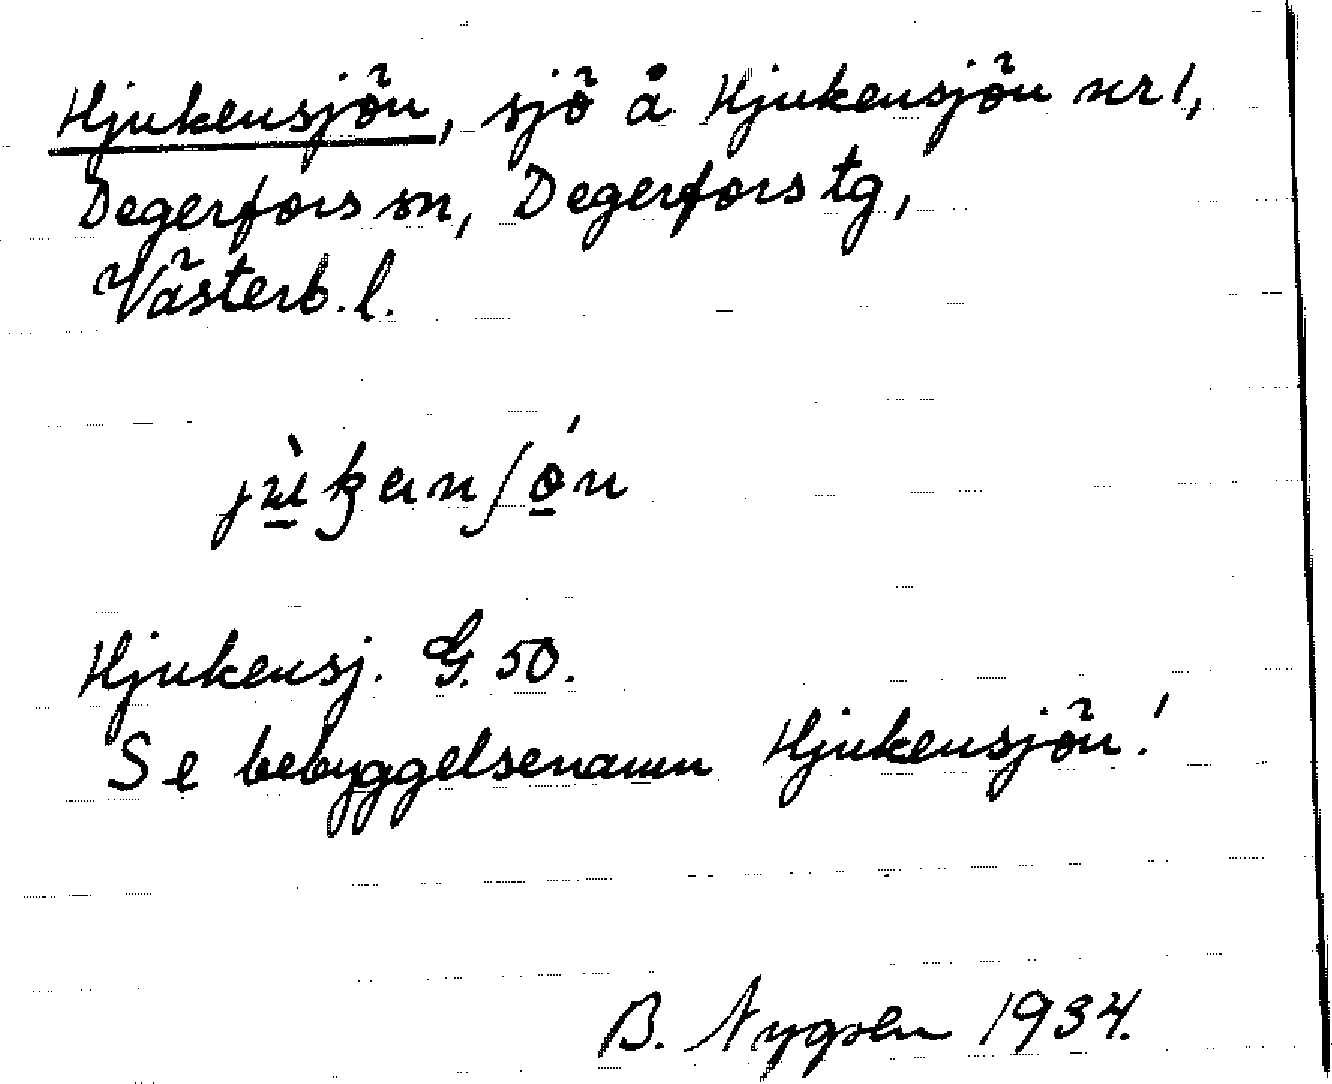 Hjukensjön, sjö å Hjukensjön nr 1,
Degerfors sn, Degerfors tg,
Västerb. l.
Hjukensj. G. 50.
Se bebyggelsenamn Hjukensjön!
B. 1934.